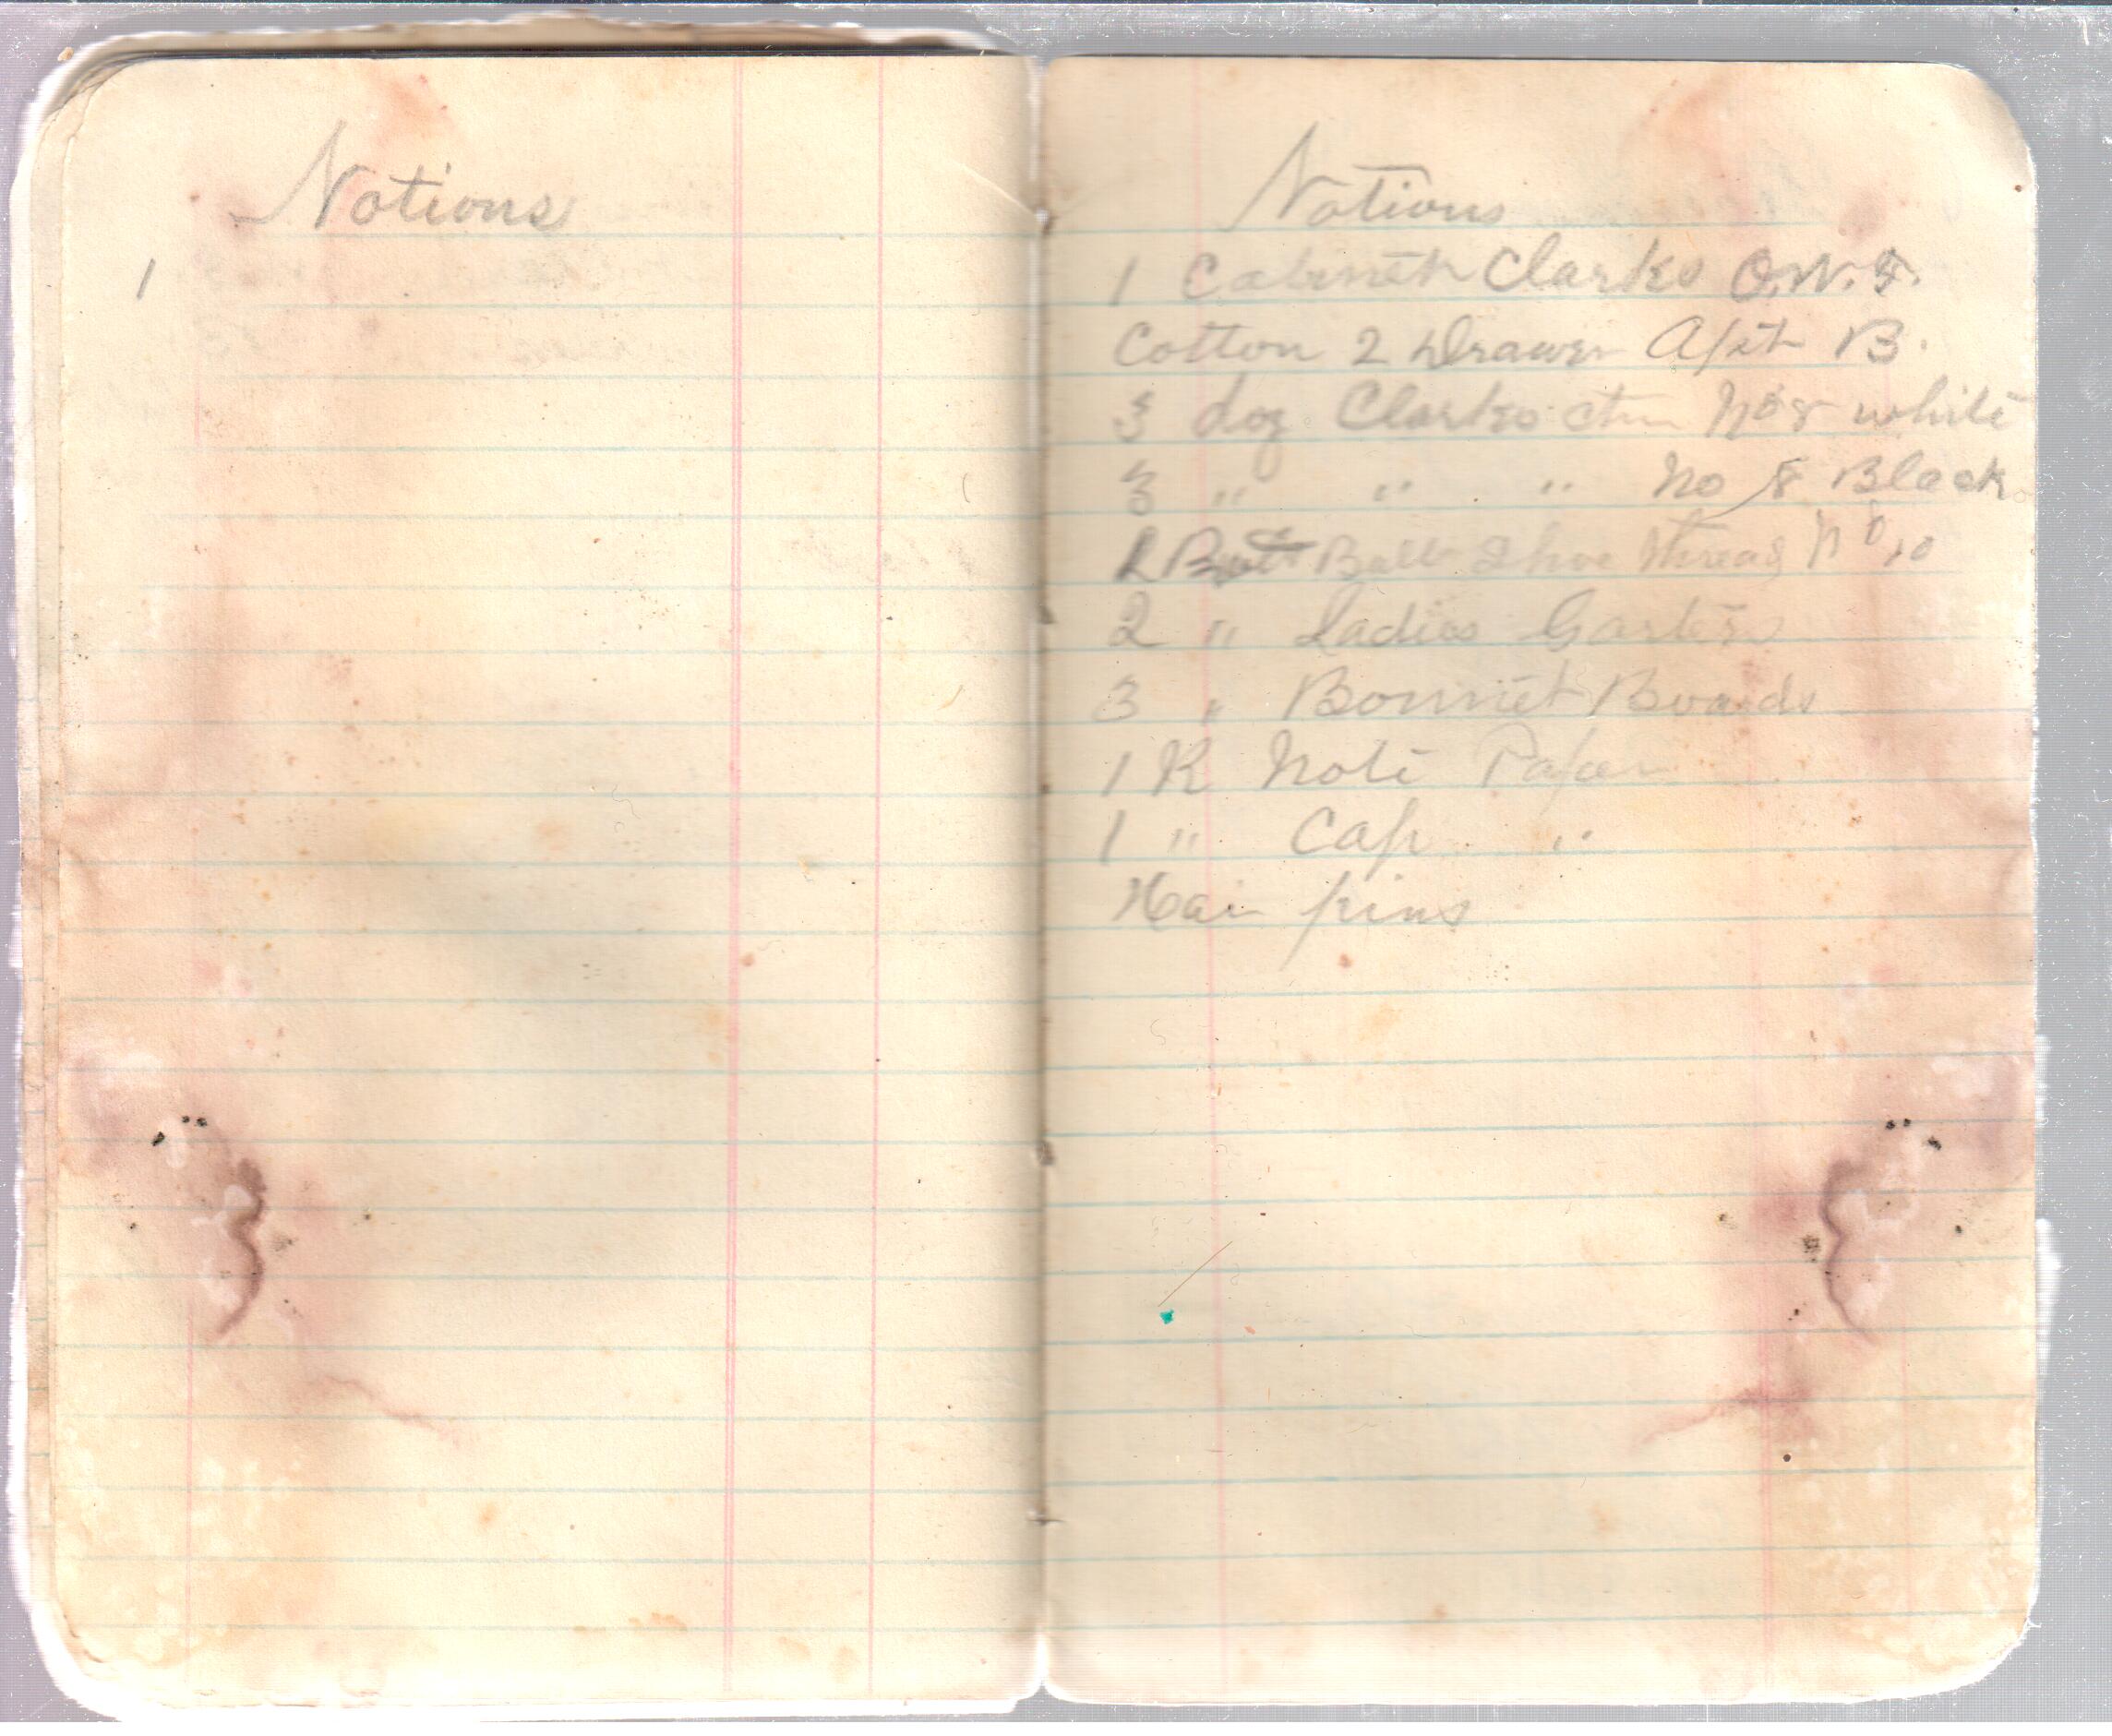 Notions
1
Notions
1 Cabinet Clarks O.N.T.
Cotton 2 Drawer B.
3 doz Clarks No 8 white
3 " " " No 8 Black
Ball Shoe thread No 10
2 " Ladies Garters
3 " Bonnet Boards
1 R Note Paper
1 " Cap "
Hair pins